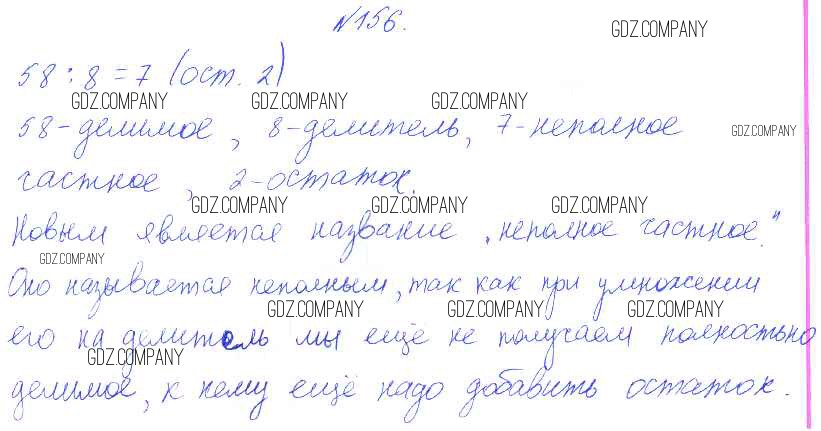 №156.
GDZ.COMPANY
58 : 8 = 7 (ост. 2)
GDZ.COMPANY GDZ.COMPANY GDZ.COMPANY
58-делимое, 8-делитель, 7-неполное
GDZ.COMPANY
частное, 2-остаток.
GDZ.COMPANY GDZ.COMPANY GDZ.COMPANY
Новым является название „неполное частное."
GDZ.COMPANY
Оно называется неполным, так как при умножении
GDZ.COMPANY GDZ.COMPANY GDZ.COMPANY
его на делитель мы ещё не получаем полностью
GDZ.COMPANY
делимое, к нему ещё надо добавить остаток.